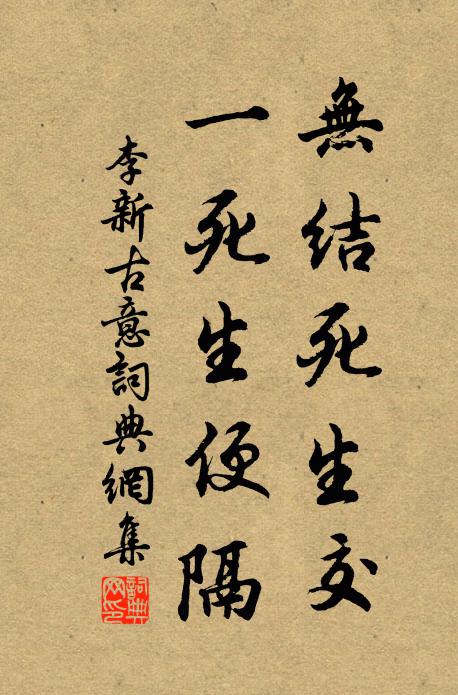 無结死生交
一死生便隔
李新古意詞典網集
詞典
网印